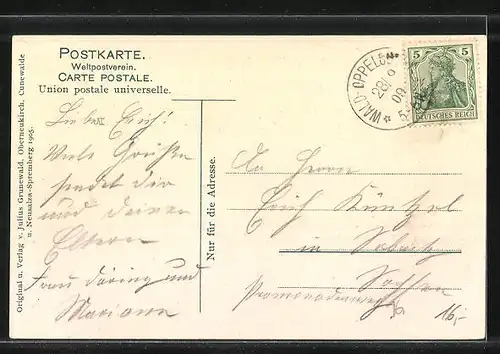 POSTKARTE.
Weltpostverein.
CARTE POSTALE.
Union postale universelle.
WALD-OPPELSD
28/9
09
5
5
DEUTSCHES REICH
Original u. Verlag v. Julius Grunewald, Oberneukirch, Cunewalde
u. Neusalza-Spremberg 1905.
Nur für die Adresse.
Lieber Erich!
Viele Grüsse
sendet dir
und deinen
Eltern
Frau Düring und
Mariann
An Herrn
Erich Küntzel
in
Sachsen
Promenadenweg
16,-